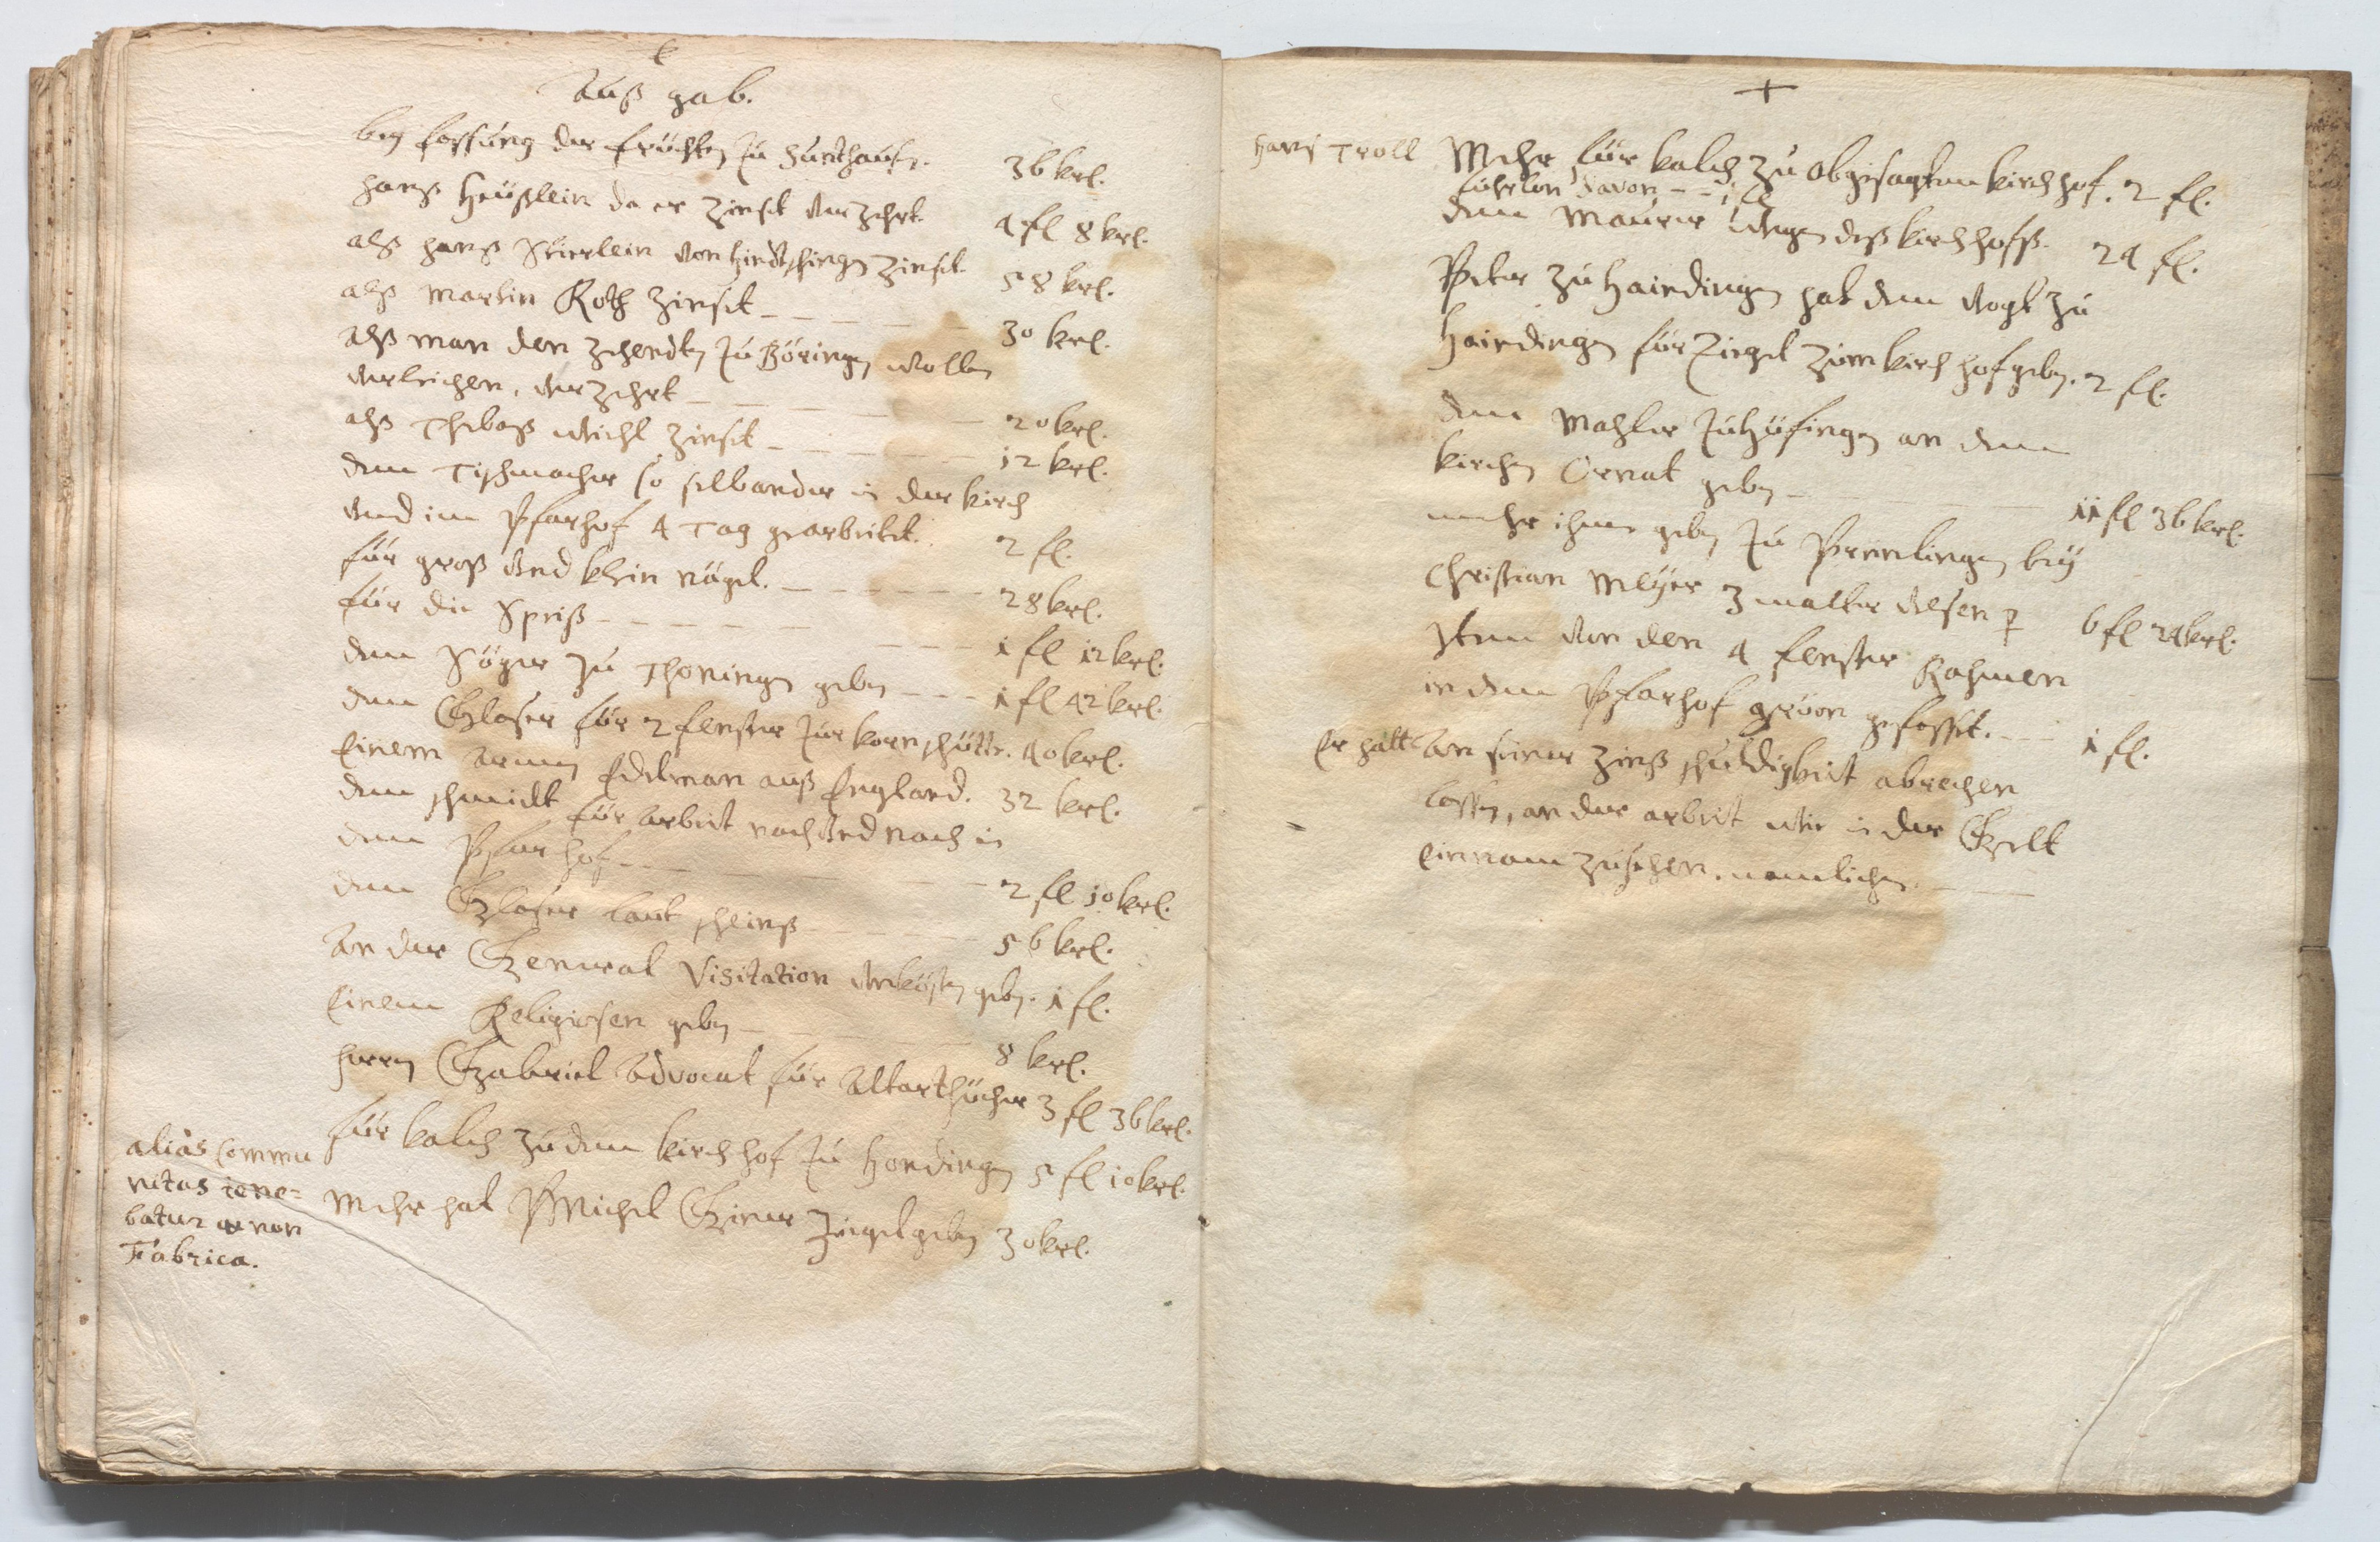 Auß gab.
bey fassung der früchten zu Sunthausen. 36 krl.
Hanß Heüßlein da er Zinset verzehrt. 4 fl 8 krl.
alß Hanß Stierlein von Hindtschingen Zinset. 58 krl.
alß Martin Roth Zinset 30 krl.
alß man den Zehendten zu Böringen wollen
verleichen, verzehrt 20 krl.
alß Thebaß Michl Zinset 12 krl.
dem Tischmacher so selbander in der kirch
vnd im Pfarhof 4 Tag gearbeitet. 2 fl.
für groß vnd khlein nägel. 28 krl.
für die Spriß 1 fl 12 krl.
dem Söger zu Thoningen geben 1 fl 42 krl.
dem Glaser für 2 fenster zur kornschütte. 40 krl.
Einem armen Edelman auß England. 32 krl.
dem schmidt für arbeit nach vnd nach in
dem Pfarhof 2 fl 10 krl.
dem Glaser laut scheinß 56 krl.
An der General Visitation vnkösten geben. 1 fl.
Einem Religiosen geben 8 krl.
Herrn Gabriel Advocat für Altarthücher 3 fl 36 krl.
für kalch zu dem kirchhof zu Hondingen 5 fl 10 krl.
Mehr hat Michel Giner Ziegel geben 30 krl.
alias Commu
nitas tene=
batur non
Fabrica.
+
Hans Troll Mehr für kalch zu obgesagtem kirchhof. 2 fl.
fuhrlon davon 1 fl
dem Maurer wegen deß kirchhofß. 24 fl.
Peter zu Haindingen hat dem Vogt zu
Haindingen für Ziegel zum kirchhof geben. 2 fl.
dem Mahler zu Hüfingen an dem
kirchen Ornat geben 11 fl 36 krl.
mehr ihme geben zu Preulingen bey
Christian Meyer 3 malter vesen p 6 fl 24 krl.
Item von den 4 fenster Rahmen
in dem Pfarhof grüon gefasset. 1 fl.
Er hatt an seiner Zinß schuldigkeit abrechen
lassen, an der arbeit wie in der Gelt
Einnam zusehen. namlichen